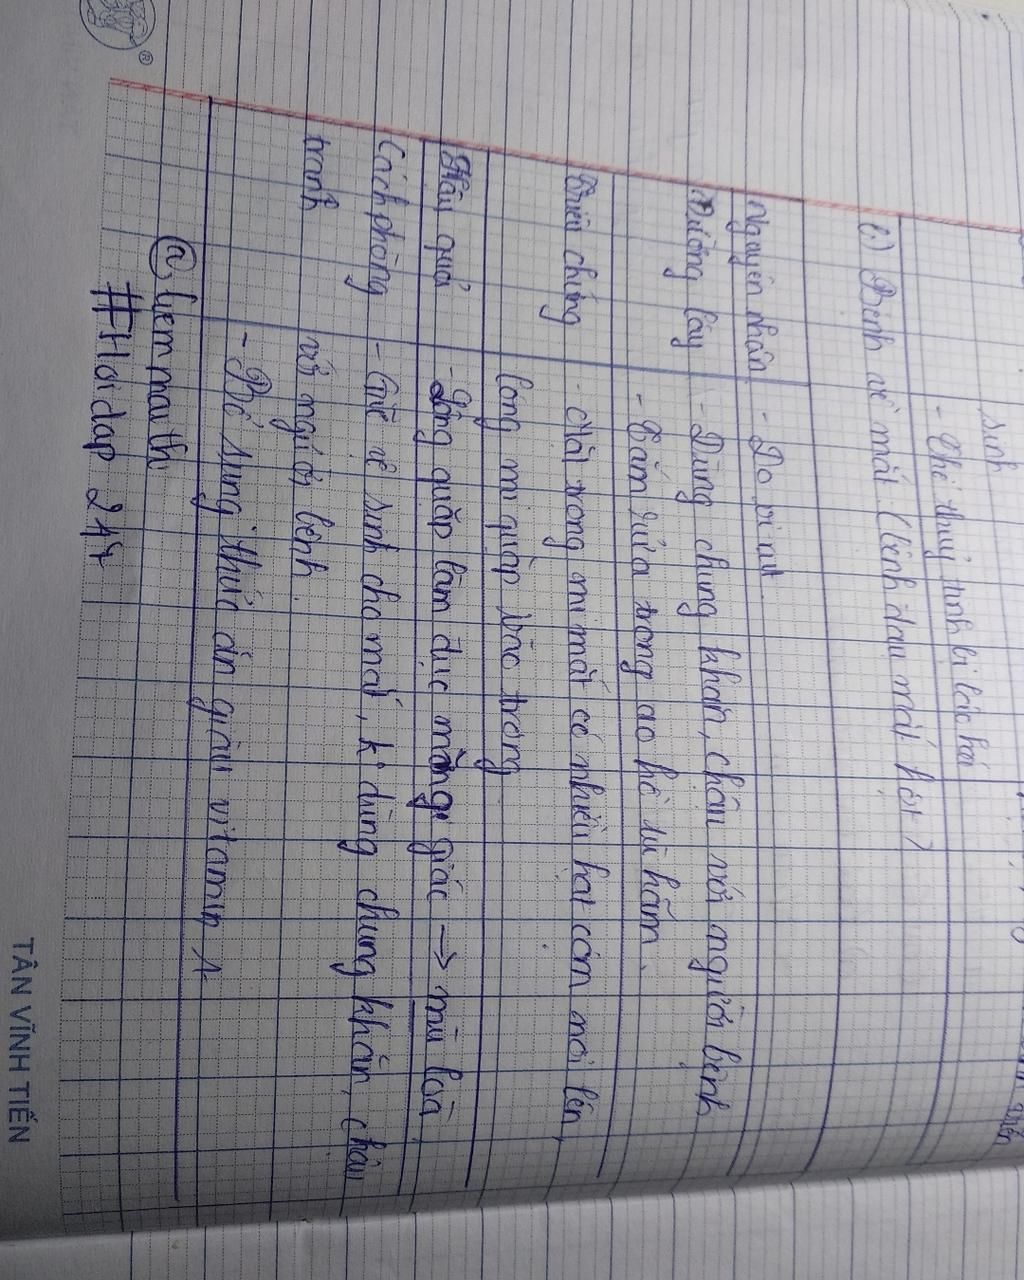 sinh
- Thể thuỷ tinh bị lão hoá
b.) Bệnh về mắt (bệnh đau mắt hột)
Nguyên nhân - Do vi rút
Đường lây - Dùng chung khăn, chậu với người bệnh
- Tắm rửa trong ao hồ tù hãm.
Triệu chứng - Mặt trong mi mắt có nhiều hạt cộm nổi lên,
lông mi quặp vào trong
Hậu quả - Lông quặp làm đục màng giác → mù loà
Cách phòng - Giữ vệ sinh cho mắt, k dùng chung khăn, chậu
tránh với người bệnh.
- Bổ sung thức ăn giàu vitamin A
@ kemmauthi
#Hoidap 247
®
TÂN VĨNH TIẾN